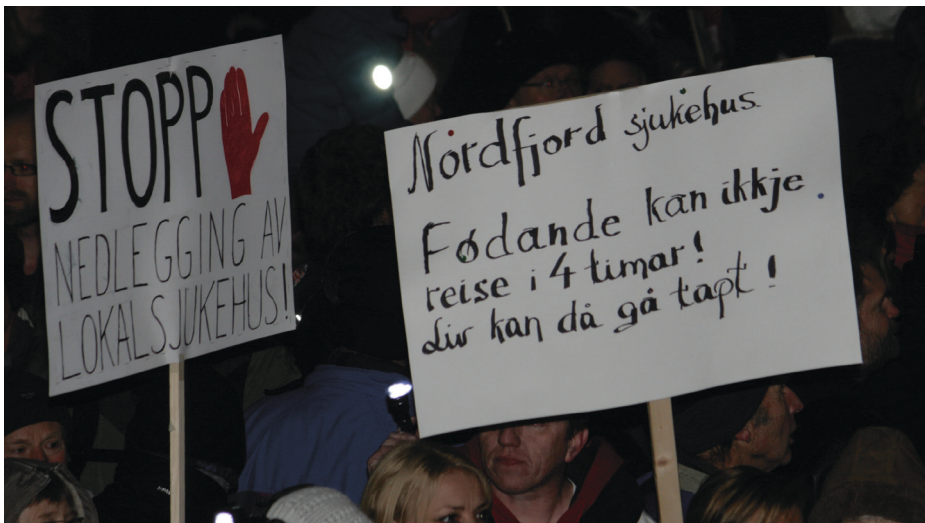 STOPP
NEDLEGGING AV
LOKALSJUKEHUS!
Nordfjord sjukehus
Fødande kan ikkje
reise i 4 timar!
Liv kan då gå tapt!